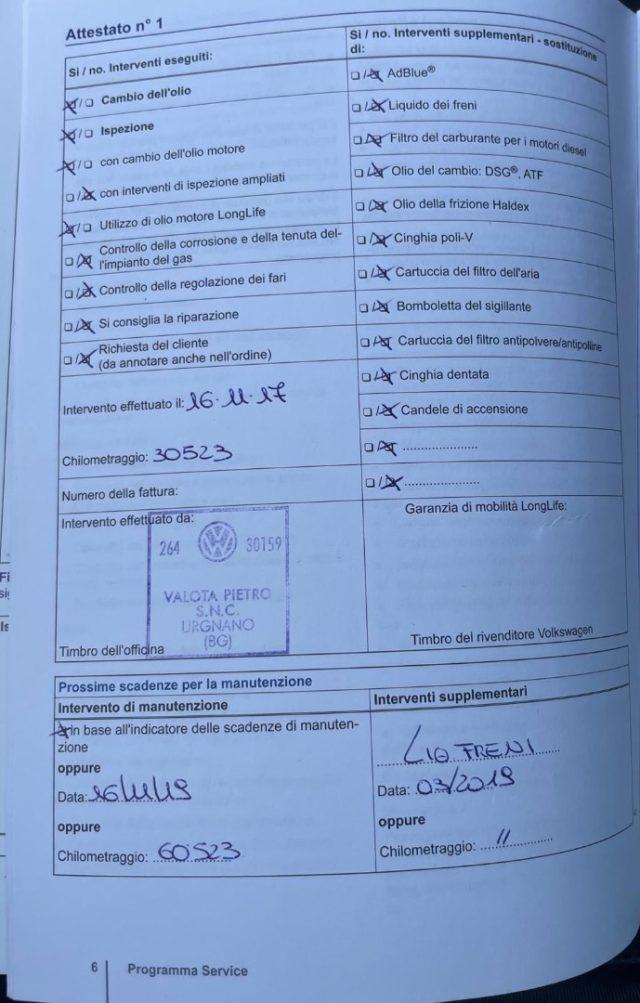 Attestato n° 1
Si / no. Interventi eseguiti:
☒/❑ Cambio dell'olio
☒/❑ Ispezione
☒/❑ con cambio dell'olio motore
❑/☒ con interventi di ispezione ampliati
☒/❑ Utilizzo di olio motore LongLife
❑/☒ Controllo della corrosione e della tenuta del-
l'impianto del gas
❑/☒ Controllo della regolazione dei fari
❑/☒ Si consiglia la riparazione
❑/☒ Richiesta del cliente
(da annotare anche nell'ordine)
Intervento effettuato il: 16.11.17
Chilometraggio: 30523
Numero della fattura:
Intervento effettuato da:
264 VW 30159
VALOTA PIETRO
S.N.C.
URGNANO
(BG)
Timbro dell'officina
Si / no. Interventi supplementari - sostituzione
di:
❑/☒ AdBlue®
❑/☒ Liquido dei freni
❑/☒ Filtro del carburante per i motori diesel
❑/☒ Olio del cambio: DSG®, ATF
❑/☒ Olio della frizione Haldex
❑/☒ Cinghia poli-V
❑/☒ Cartuccia del filtro dell'aria
❑/☒ Bomboletta del sigillante
❑/☒ Cartuccia del filtro antipolvere/antipolline
❑/☒ Cinghia dentata
❑/☒ Candele di accensione
❑/☒ ....................
❑/☒ ....................
Garanzia di mobilità LongLife:
Timbro del rivenditore Volkswagen
Prossime scadenze per la manutenzione
Intervento di manutenzione
☒ in base all'indicatore delle scadenze di manuten-
zione
oppure
Data: 16/11/19
oppure
Chilometraggio: 60523
Interventi supplementari
LIQ FRENI
Data: 03/2019
oppure
Chilometraggio: 11
6 Programma Service